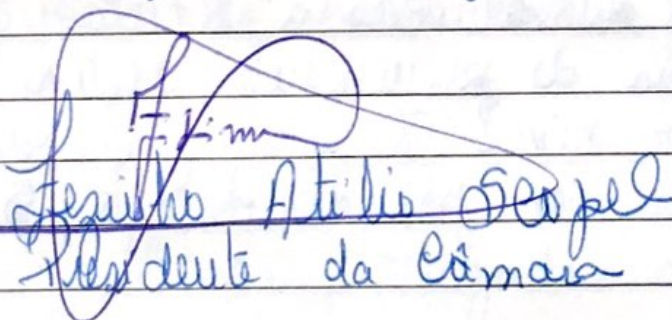 Jezuinho Atilio Scopel
Presidente da Câmara